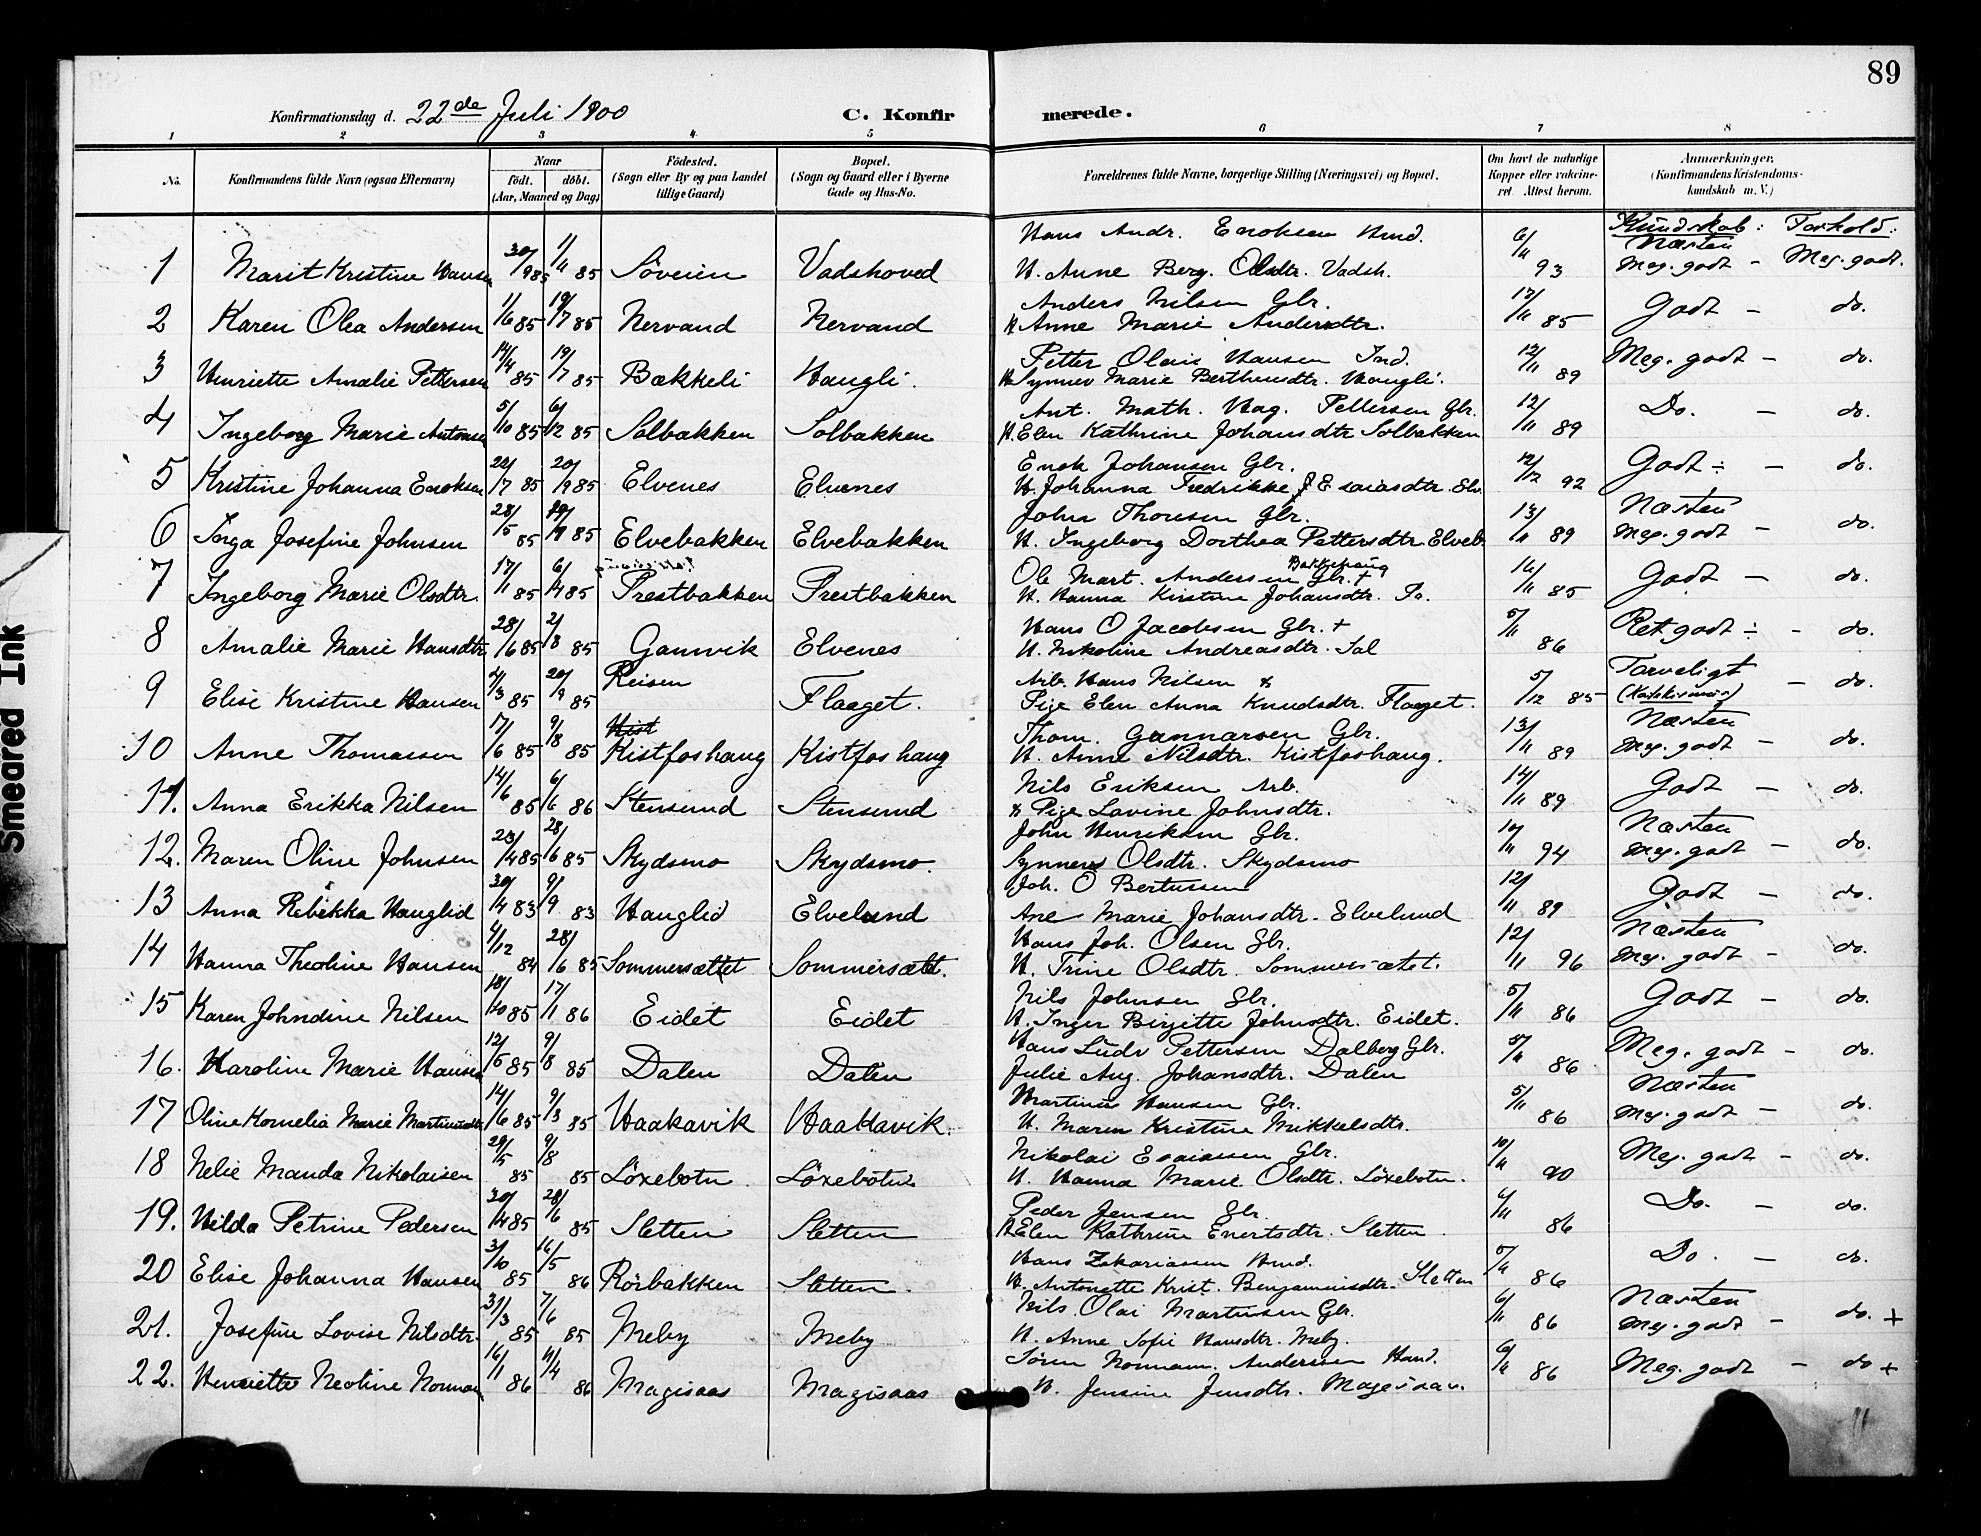 89
Konfirmationsdag d. 22de Juli 1900
C. Konfir
merede.
1 2 3 4 5 6 7 8
No.
Konfirmandens fulde Navn (ogsaa Efternavn)
Naar
födt. döbt.
(Aar, Maaned og Dag)
Födested.
(Sogn eller By og paa Landet
tillige Gaard)
Bopæl.
(Sogn og Gaard eller i Byerne
Gade og Hus-No.
Forældrenes fulde Navne, borgerlige Stilling (Næringsvei) og Bopæl.
Om havt de naturlige
Kopper eller vakcine-
ret. Attest herom.
Anmærkninger,
(Konfirmandens Kristendoms-
kundskab m. V.)
Kundskab: Forhold:
Hans Andr. Enoksen Næsten
1 Marit Kristine Hansen 30/9 85 1/11 85 Vadshoved H. Anne Berg. Olsdtr. Vadsh. 6/11 93 Meg. godt - Meg. godt.
Anders Nilsen Gbr.
2 Karen Olea Andersen 1/6 85 19/7 85 Nervand Nervand H. Anne Marie Andersdtr. 17/11 85 Godt - do.
Petter Olais Hansen Ind.
3 Henriette Amalie Pettersen 14/4 85 19/7 85 Bakkeli Haugli. H. Synnev Marie Berthensdtr. Haugli. 12/11 89 Meg. godt - do.
Ant. Math. Hag. Pettersen Gbr.
4 Ingeborg Marie Antonsen 5/10 85 6/12 85 Solbakken Solbakken H. Elen Kathrine Johansdtr Solbakken 12/11 89 Do. - do.
Enok Johansen Gbr.
5 Kristine Johanna Enoksen 22/7 85 20/9 85 Elvenes Elvenes H. Johanna Fredrikke Esaiasdtr. Elv. 12/12 92 Godt ÷ - do.
John Thoresen Gbr. Næsten
6 Inga Josefine Johnsen 28/5 85 85 Elvebakken Elvebakken H. Ingeborg Dorthea Pettersdtr. Elveb. 13/11 89 Meg. godt - do.
Ole Mart. Andersen Gbr. + Bakkehaug
7 Ingeborg Marie Olsdtr. 17/1 85 6/4 85 Prestbakken Prestbakken H. Hanna Kirstine Johansdtr. 16/11 85 Godt - do.
Hans O Jacobsen Gbr. +
8 Amalie Marie Hansdtr 28/6 85 2/8 85 Gamvik Elvenes H. Nikoline Andreasdtr. Sal 5/11 86 Ret godt ÷ - do.
Reisen Arb. Hans Nilsen & Tarveligt
9 Elise Kristine Hansen 4/3 85 20/9 85 Flaaget. Pige Elen Anna Knudsdtr. Flaaget. 5/12 85 - do.
Kist Thom. Gunnarsen Gbr. Næsten
10 Anne Thomassen 17/6 85 9/8 85 Kistfoshaug Kistfoshaug H. Anne Nilsdtr. Kistfoshaug. 13/11 89 Meg. godt - do.
Nils Eriksen Arb.
11. Anna Erikka Nilsen 14/6 85 6/6 86 Stensund Stensund & Pige Lavine Johnsdtr. 14/11 89 Godt - do.
John Henriksen Gbr. Næsten
12. Maren Oline Johnsen 23/4 85 28/6 85 Skydsmo Skydsmo. Synnev Olsdtr. Skydsmo 10/11 94 Meg. godt - do.
Joh. O Bertussen
13 Anna Rebekka Hauglid 30/4 83 9/9 83 Hauglid Elvelund Ane Marie Johansdtr. Elvelund 12/11 89 Godt - do.
Hans Joh. Olsen Gbr. Næsten
14 Hanna Theoline Hansen 4/12 84 28/6 85 Sommersættet Sommersæt. H. Trine Olsdtr. Sommersætet. 12/11 96 Meg. godt - do.
Nils Johnsen Gbr.
15 Karen Johndine Nilsen 18/10 85 17/1 86 Eidet Eidet H. Inger Birgitte Johnsdtr. Eidet. 5/11 86 Godt - do.
Hans Ludv Pettersen Dalberg Gbr.
16. Karoline Marie Hansen 12/5 85 9/8 85 Dalen Dalen Julie Aug. Johansdtr. Dalen 5/11 86 Meg. godt - do.
Martinus Hansen Gbr. Næsten
17 Oline Kornelia Marie Martinusdtr 14/6 85 9/3 85 Haakavik Haakavik. H. Maren Kristine Mikkelsdtr. 5/11 86 Meg. godt - do.
Nikolai Esaiassen Gbr.
18 Nelie Manda Nikolaisen 29/5 85 9/8 85 Löxebotn Löxebotn H. Hanna Marie Olsdtr. Löxebotn. 10/11 90 Meg. godt - do.
Peder Jensen Gbr.
19. Hilda Petrine Pedersen 30/4 85 28/6 85 Sletten Sletten H. Elen Kathrine Enertsdtr. Sletten. 6/11 86 Do. - do.
Hans Zakariassen
20 Elise Johanna Hansen 3/10 85 16/5 86 Rörbakken Sletten. H. Antonette Krist. Benjaminsdtr. Sletten 5/11 86 Do. - do.
Nils Olai Martinsen Gbr. Næsten
21. Josefine Lovise Nilsdtr. 31/3 85 7/6 85 Meby Meby H. Anne Sofie Hansdtr. Meby. 6/11 86 Meg. godt - do. +
Sören Normann Anderssen
22. Henriette Neoline Norman 16/1 86 11/4 86 Magisaas Magisaas H. Jensine Jensdtr. Magesaas. 6/11 86 Meg. godt - do +
Smeared Ink